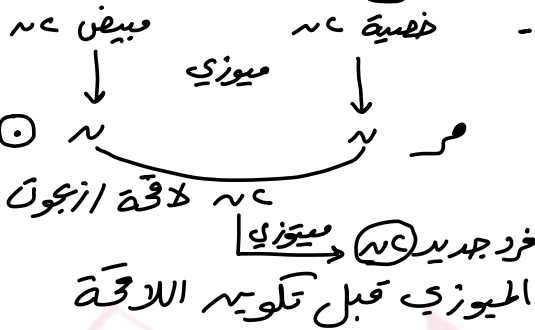 - خصية ٢ن مبيض ٢ن
ميوزي
ن ن
٢ن لاقحة / زيجوت
ميتوزي
فرد جديد ٢ن
الميوزي قبل تكوين اللاقحة